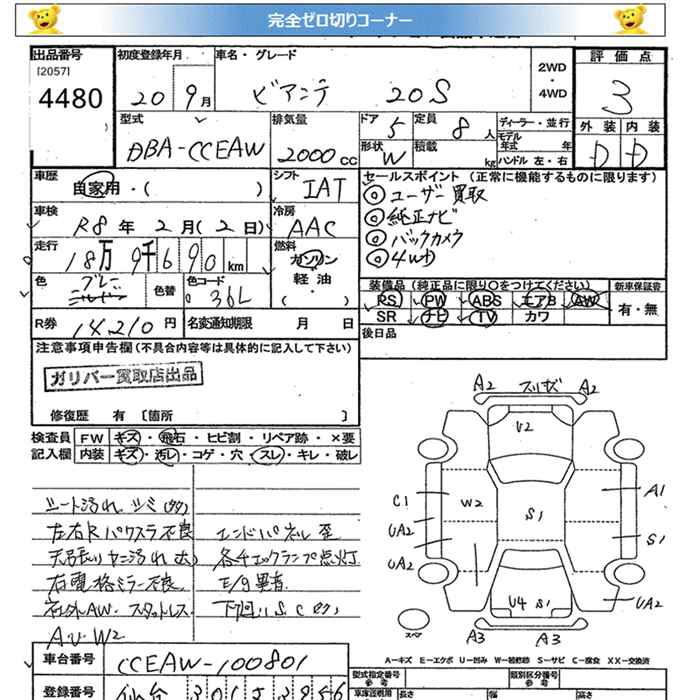 完全ゼロ切りコーナー
出品番号 初度登録年月 車名・グレード 評価点
[2057]
4480 20 9月 ビアンテ 20S 2WD ・ 4WD 3
外装 内装
D D
型式 排気量 ドア 定員 ディーラー・並行
DBA-CCEAW 2000cc 5 8人 モデル年式 年
形状 W 積載 kg ハンドル 左・右
車歴 自家用・( ) シフト IAT セールスポイント (正常に機能するものに限ります)
◎ユーザー買取
車検 R8年2月(2日) 冷房 AAC ◎純正ナビ
走行 18万9千690km 燃料 ガソリン ◎バックカメラ
軽油・( ) ◎4wd
色 色替 色コード 36L
装備品 (純正品に限り○をつけてください) 新車保証書
RS PW ABS エアB AW 有・無
SR ナビ TV カワ
R券 14210円 名変通知期限 月 日 後日品
注意事項申告欄 (不具合内容等は具体的に記入して下さい)
ガリバー買取店出品
修復歴 有 [箇所 ]
検査員 FW キズ・飛石・ヒビ割・リペア跡・×要
記入欄 内装 キズ・汚レ・コゲ・穴・スレ・キレ・破レ
シート汚れ シミ
左右Rパワスラ不良 エンドパネル歪
天張りヤニ汚れ大 各チェックランプ点灯
右電格ミラー不良 E/g異音
社外AW・スタットレス 下廻りS.C
AU W2
A2 スリキズ A2
U2
C1 W2 S1 A1
UA2 S1
UA2
U4 S1 UA2
スペア A3 A3
A=キズ E=エクボ U=凹み W=補修跡 S=サビ C=腐食 XX=交換済
車台番号 CCEAW-100801
型式指定番号 類別区分番号
参考 参考
登録番号 仙台 301
長さ 幅 高さ